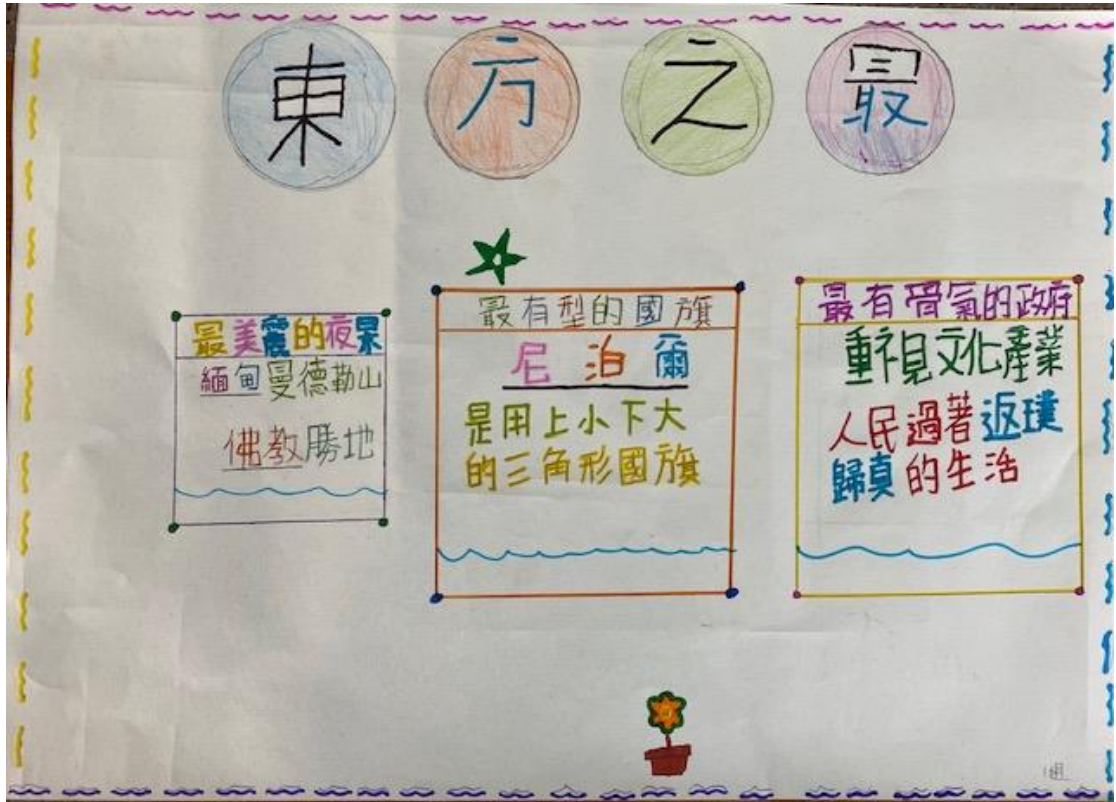 東方之最
最美麗的夜景
緬甸曼德勒山
佛教勝地
最有型的國旗
尼泊爾
是用上小下大
的三角形國旗
最有骨氣的政府
重視文化產業
人民過著返璞
歸真的生活